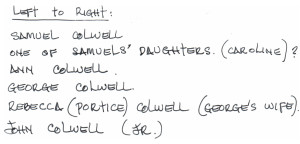 LEFT TO RIGHT:
SAMUEL COLWELL
ONE OF SAMUELS' DAUGHTERS. (CAROLINE)?
ANN COLWELL.
GEORGE COLWELL.
REBECCA (PORTICE) COLWELL (GEORGE'S WIFE).
JOHN COLWELL (JR.)